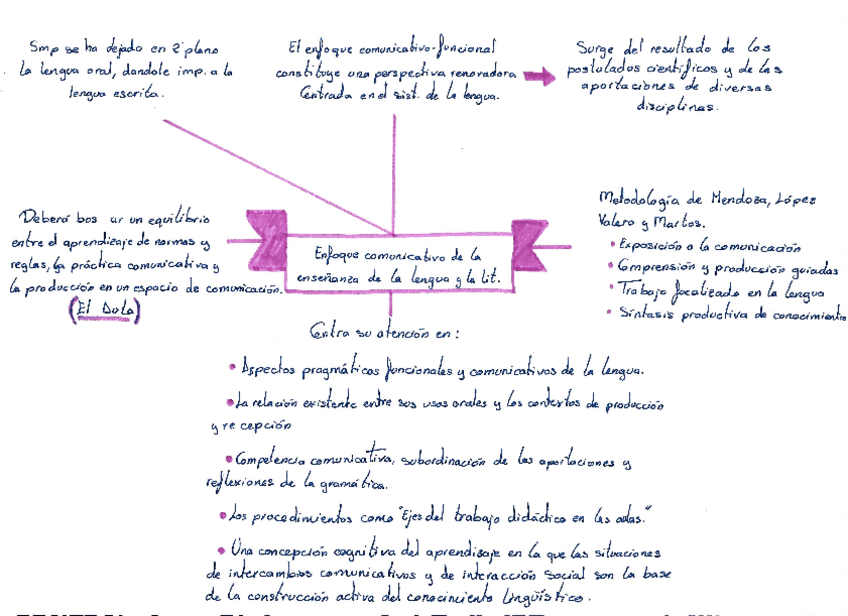 Smp se ha dejado en 2º plano
la lengua oral, dandole imp. a la
lengua escrita.
El enfoque comunicativo-funcional
constituye una perspectiva renovadora
Centrada en el sist. de la lengua.
Surge del resultado de los
postulados científicos y de las
aportaciones de diversas
disciplinas.
Deberá bos ar un equilibrio
entre el aprendizaje de normas y
reglas, la práctica comunicativa y
la producción en un espacio de comunicación.
(El Aula)
Enfoque comunicativo de la
enseñanza de la lengua y la lit.
Metodología de Mendoza, López
Valero y Martos.
• Exposición a la comunicación
• Comprensión y producción guiadas
• Trabajo focalizado en la lengua
• Síntasis productiva de conocimiento
Centra su atención en:
• Aspectos pragmáticos funcionales y comunicativos de la lengua.
• La relación existente entre sus usos orales y los contextos de producción
y re cepción
• Competencia comunicativa, subordinación de las aportaciones y
reflexiones de la gramática.
• Los procedimientos como "Ejes del trabajo didáctico en las aulas."
• Una concepción cognitiva del aprendizaje en la que las situaciones
de intercambios comunicativos y de interacción social son la base
de la construcción activa del conocimiento lingüístico.